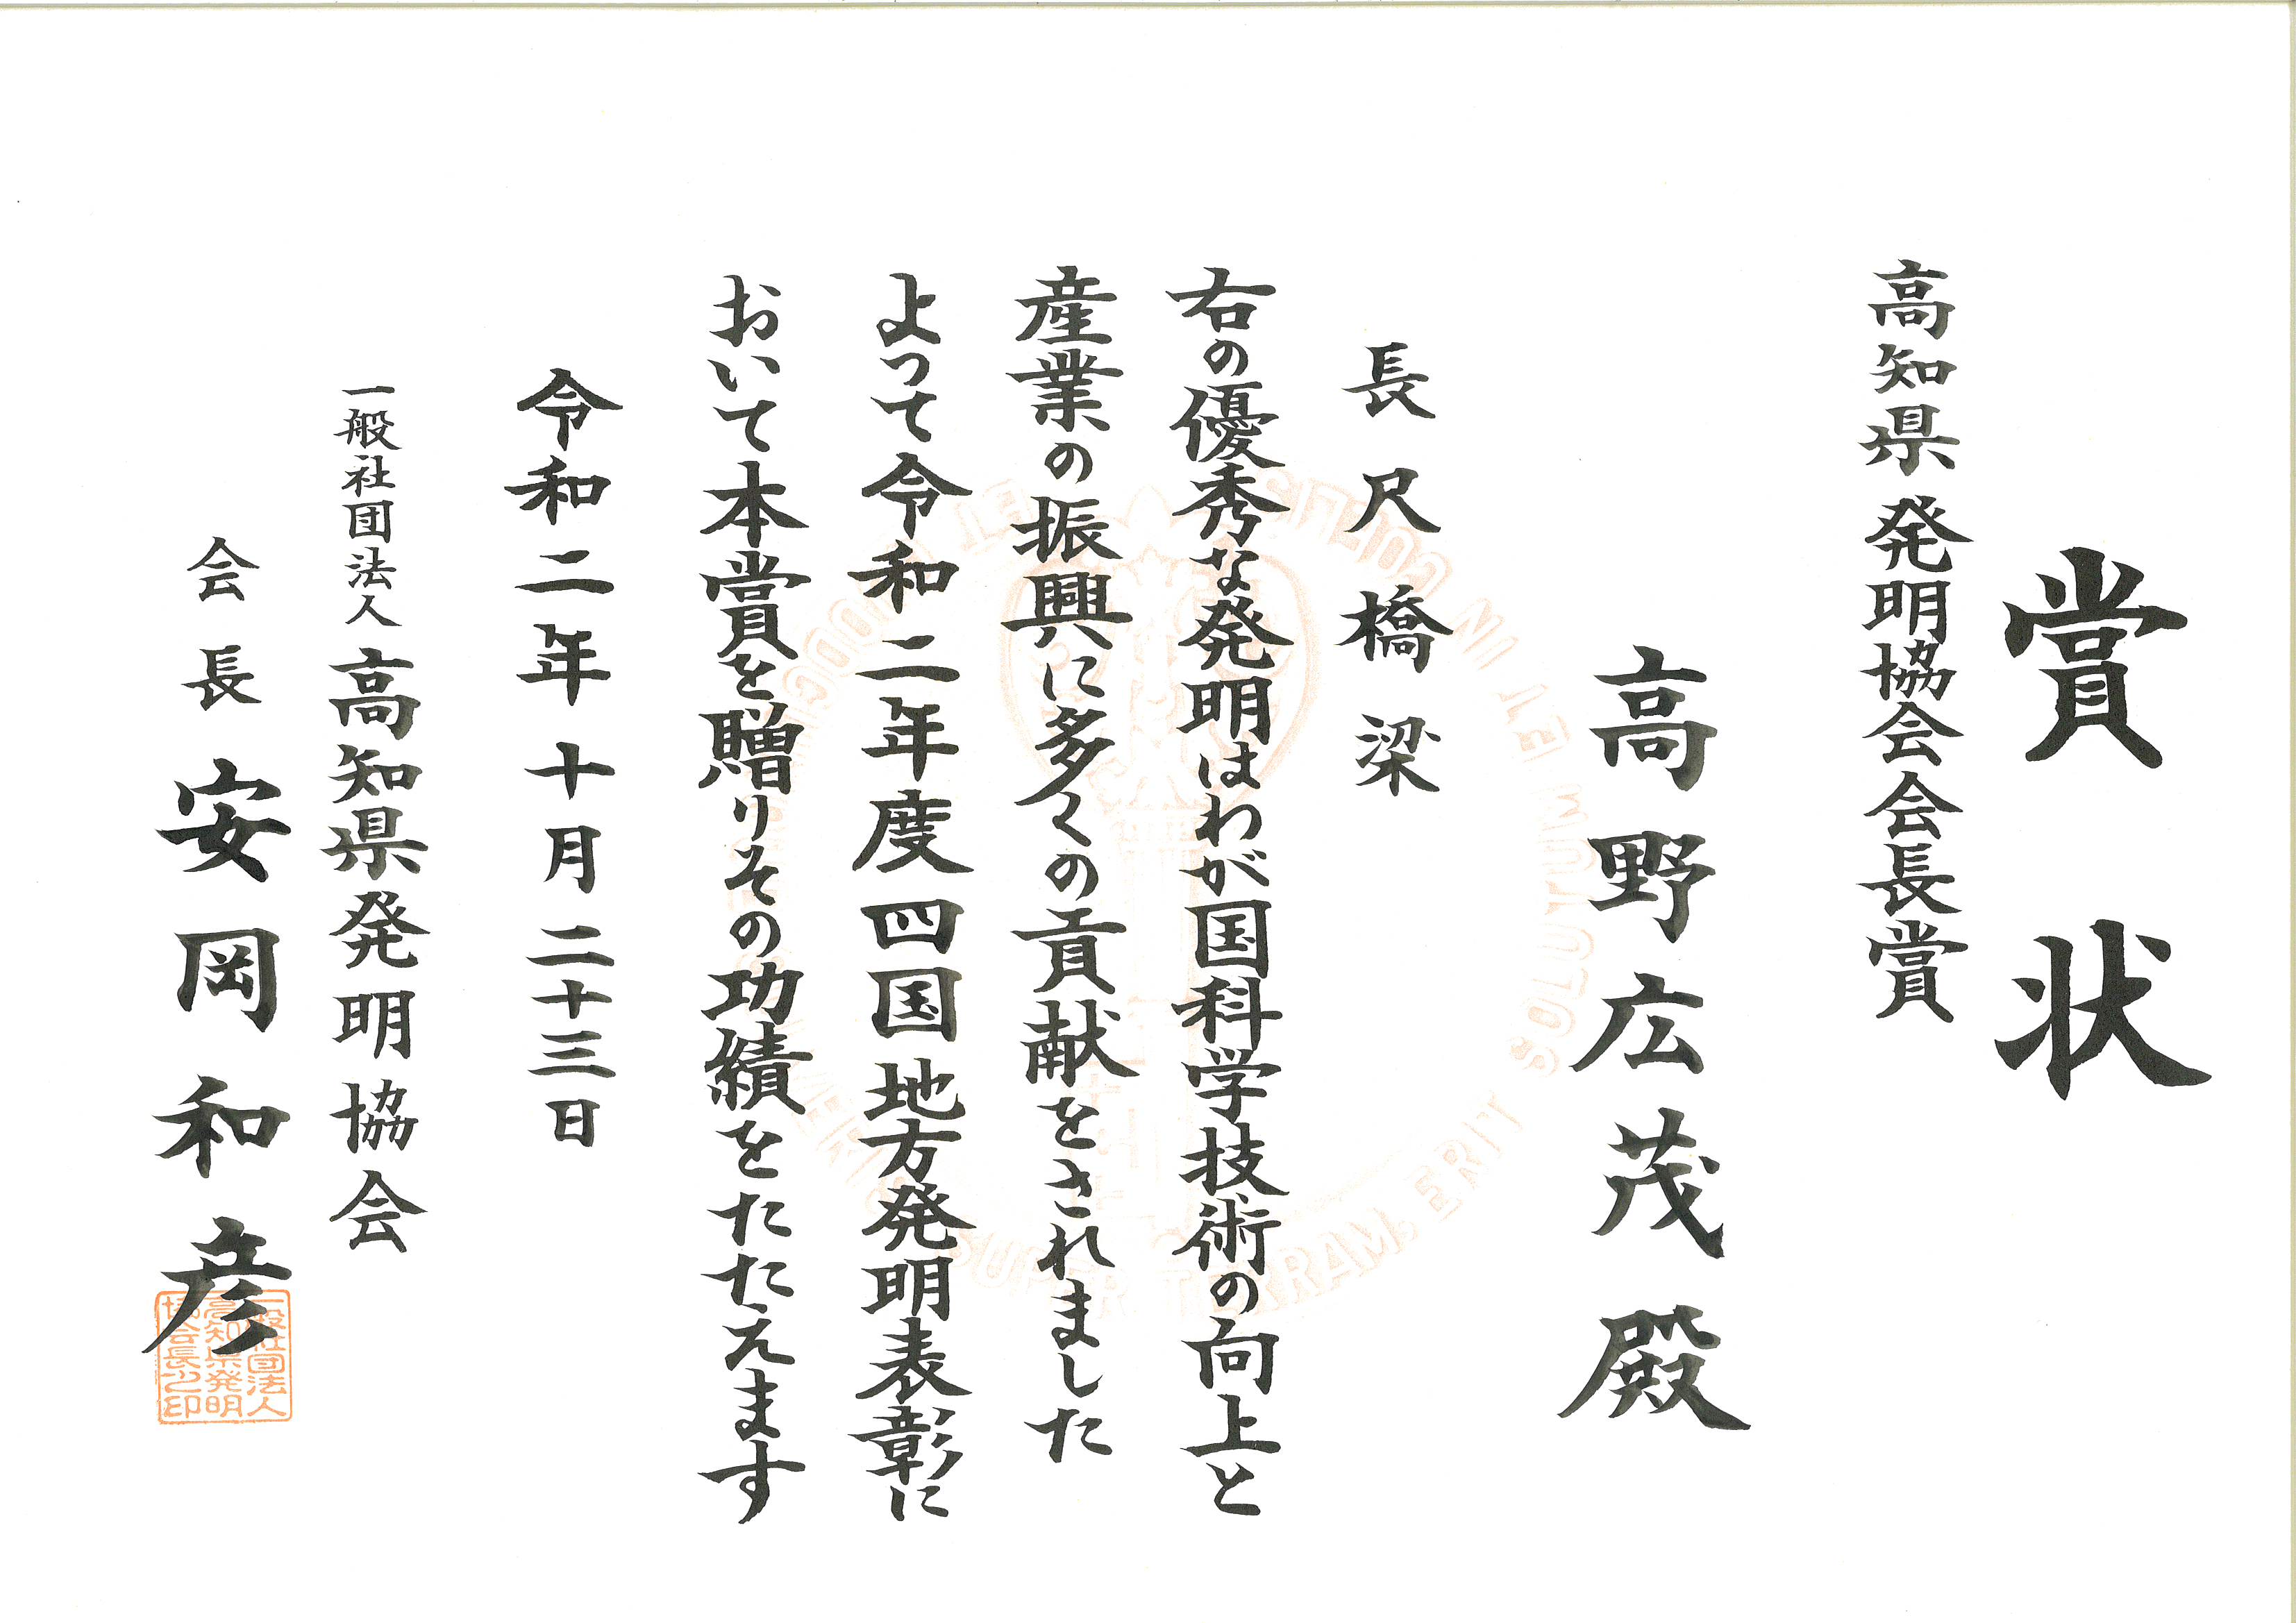 賞状
高知県発明協会会長賞
高野広茂殿
長尺橋梁
右の優秀な発明はわが国科学技術の向上と
産業の振興に多くの貢献をされました
よって令和二年度四国地方発明表彰に
おいて本賞を贈りその功績をたたえます
令和二年十月二十三日
一般社団法人高知県発明協会
会長安岡和彦
一般社団法人
高知県発明
協会長之印
SUPER TERRAM ERIT SOLUTUM ET IN